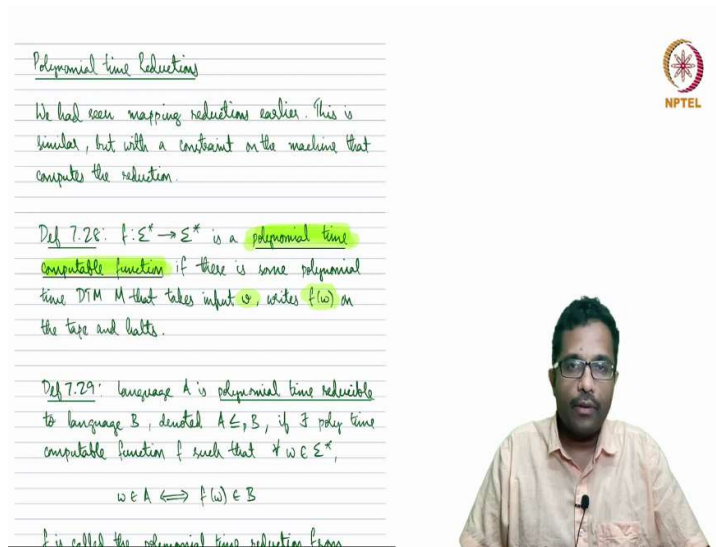 Polynomial time Reductions
We had seen mapping reductions earlier. This is
similar, but with a constraint on the machine that
computes the reduction.
Def 7.28: f: Σ* → Σ* is a polynomial time
computable function if there is some polynomial
time DTM M that takes input w, writes f(w) on
the tape and halts.
Def 7.29: Language A is polynomial time reducible
to language B, denoted A ≤p B, if ∃ poly time
computable function f such that ∀ w ∈ Σ*,
w ∈ A ⟺ f(w) ∈ B
f is called the polynomial time reduction from
NPTEL